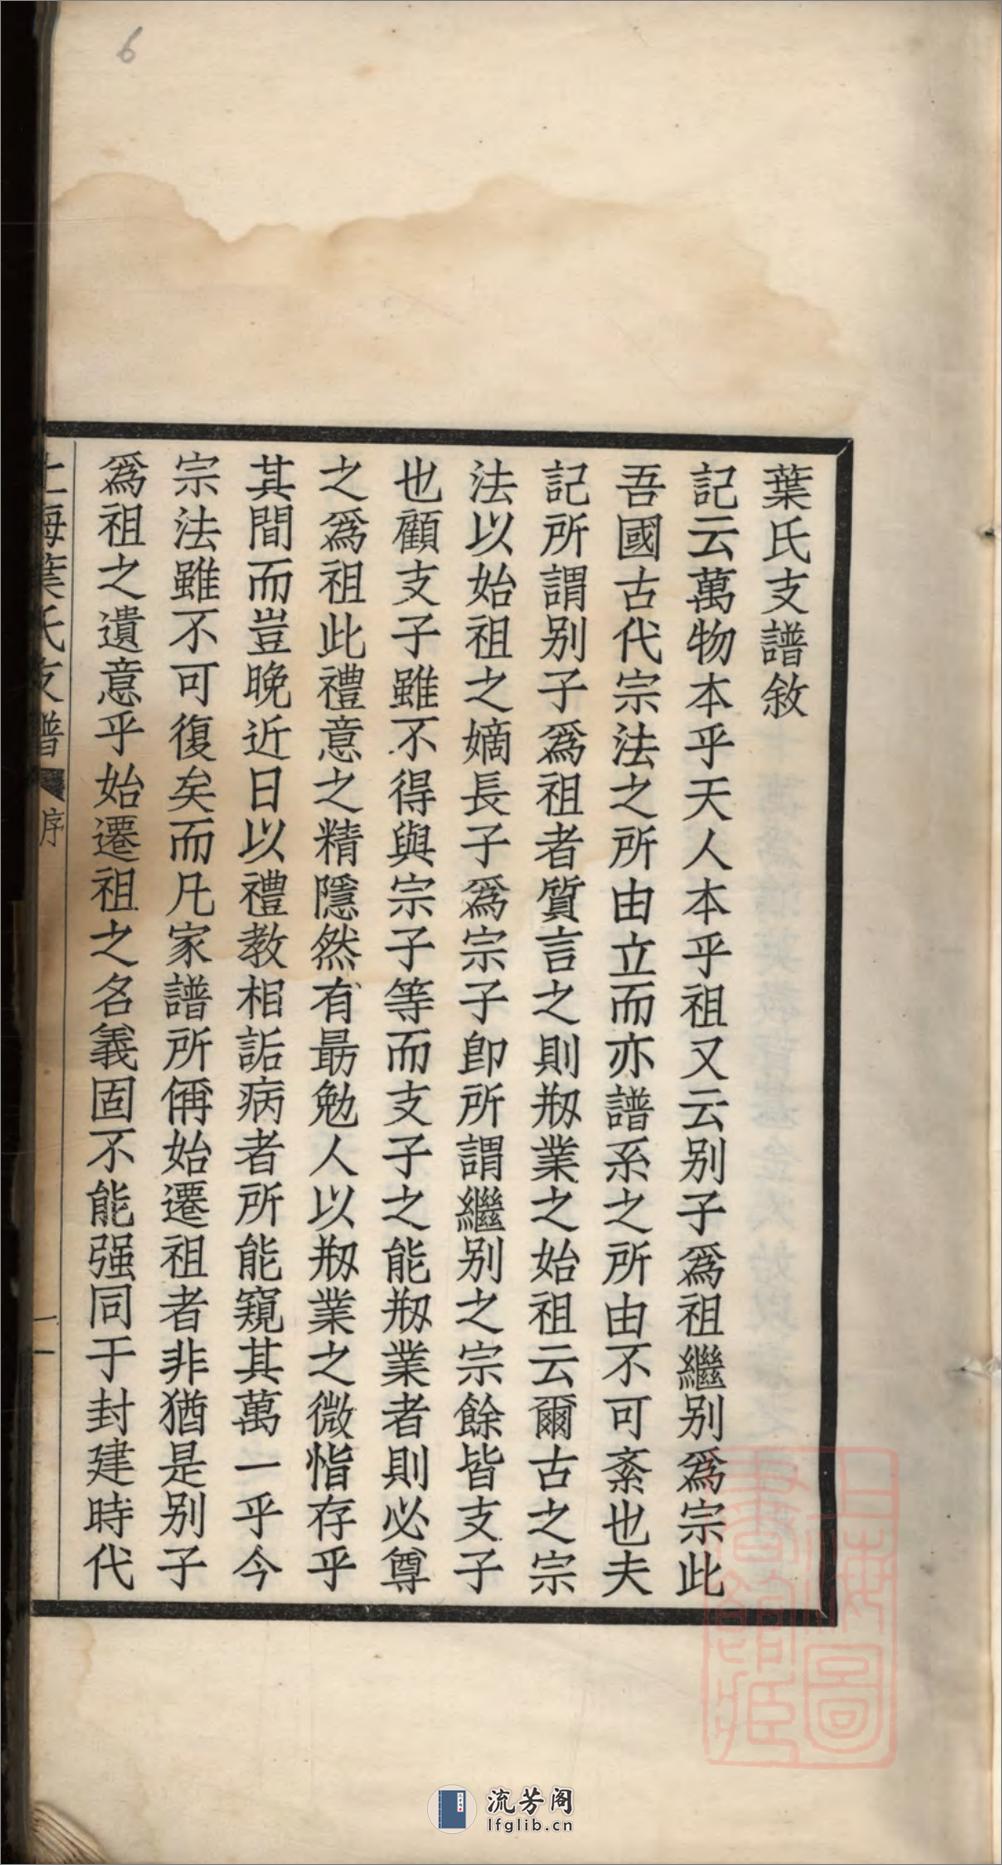 6
葉氏支譜敘
記云萬物本乎天人本乎祖又云别子爲祖繼别爲宗此
吾國古代宗法之所由立而亦譜系之所由不可紊也夫
記所謂别子爲祖者質言之則剏業之始祖云爾古之宗
法以始祖之嫡長子爲宗子卽所謂繼别之宗餘皆支子
也顧支子雖不得與宗子等而支子之能剏業者則必尊
之爲祖此禮意之精隱然有最勉人以剏業之微恉存乎
其間而豈晚近日以禮教相詬病者所能窺其萬一乎今
宗法雖不可復矣而凡家譜所偁始遷祖者非猶是别子
爲祖之遺意乎始遷祖之名義固不能强同于封建時代
上海葉氏支譜 序 一
上海圖
書館藏
流芳阁
lfglib.cn